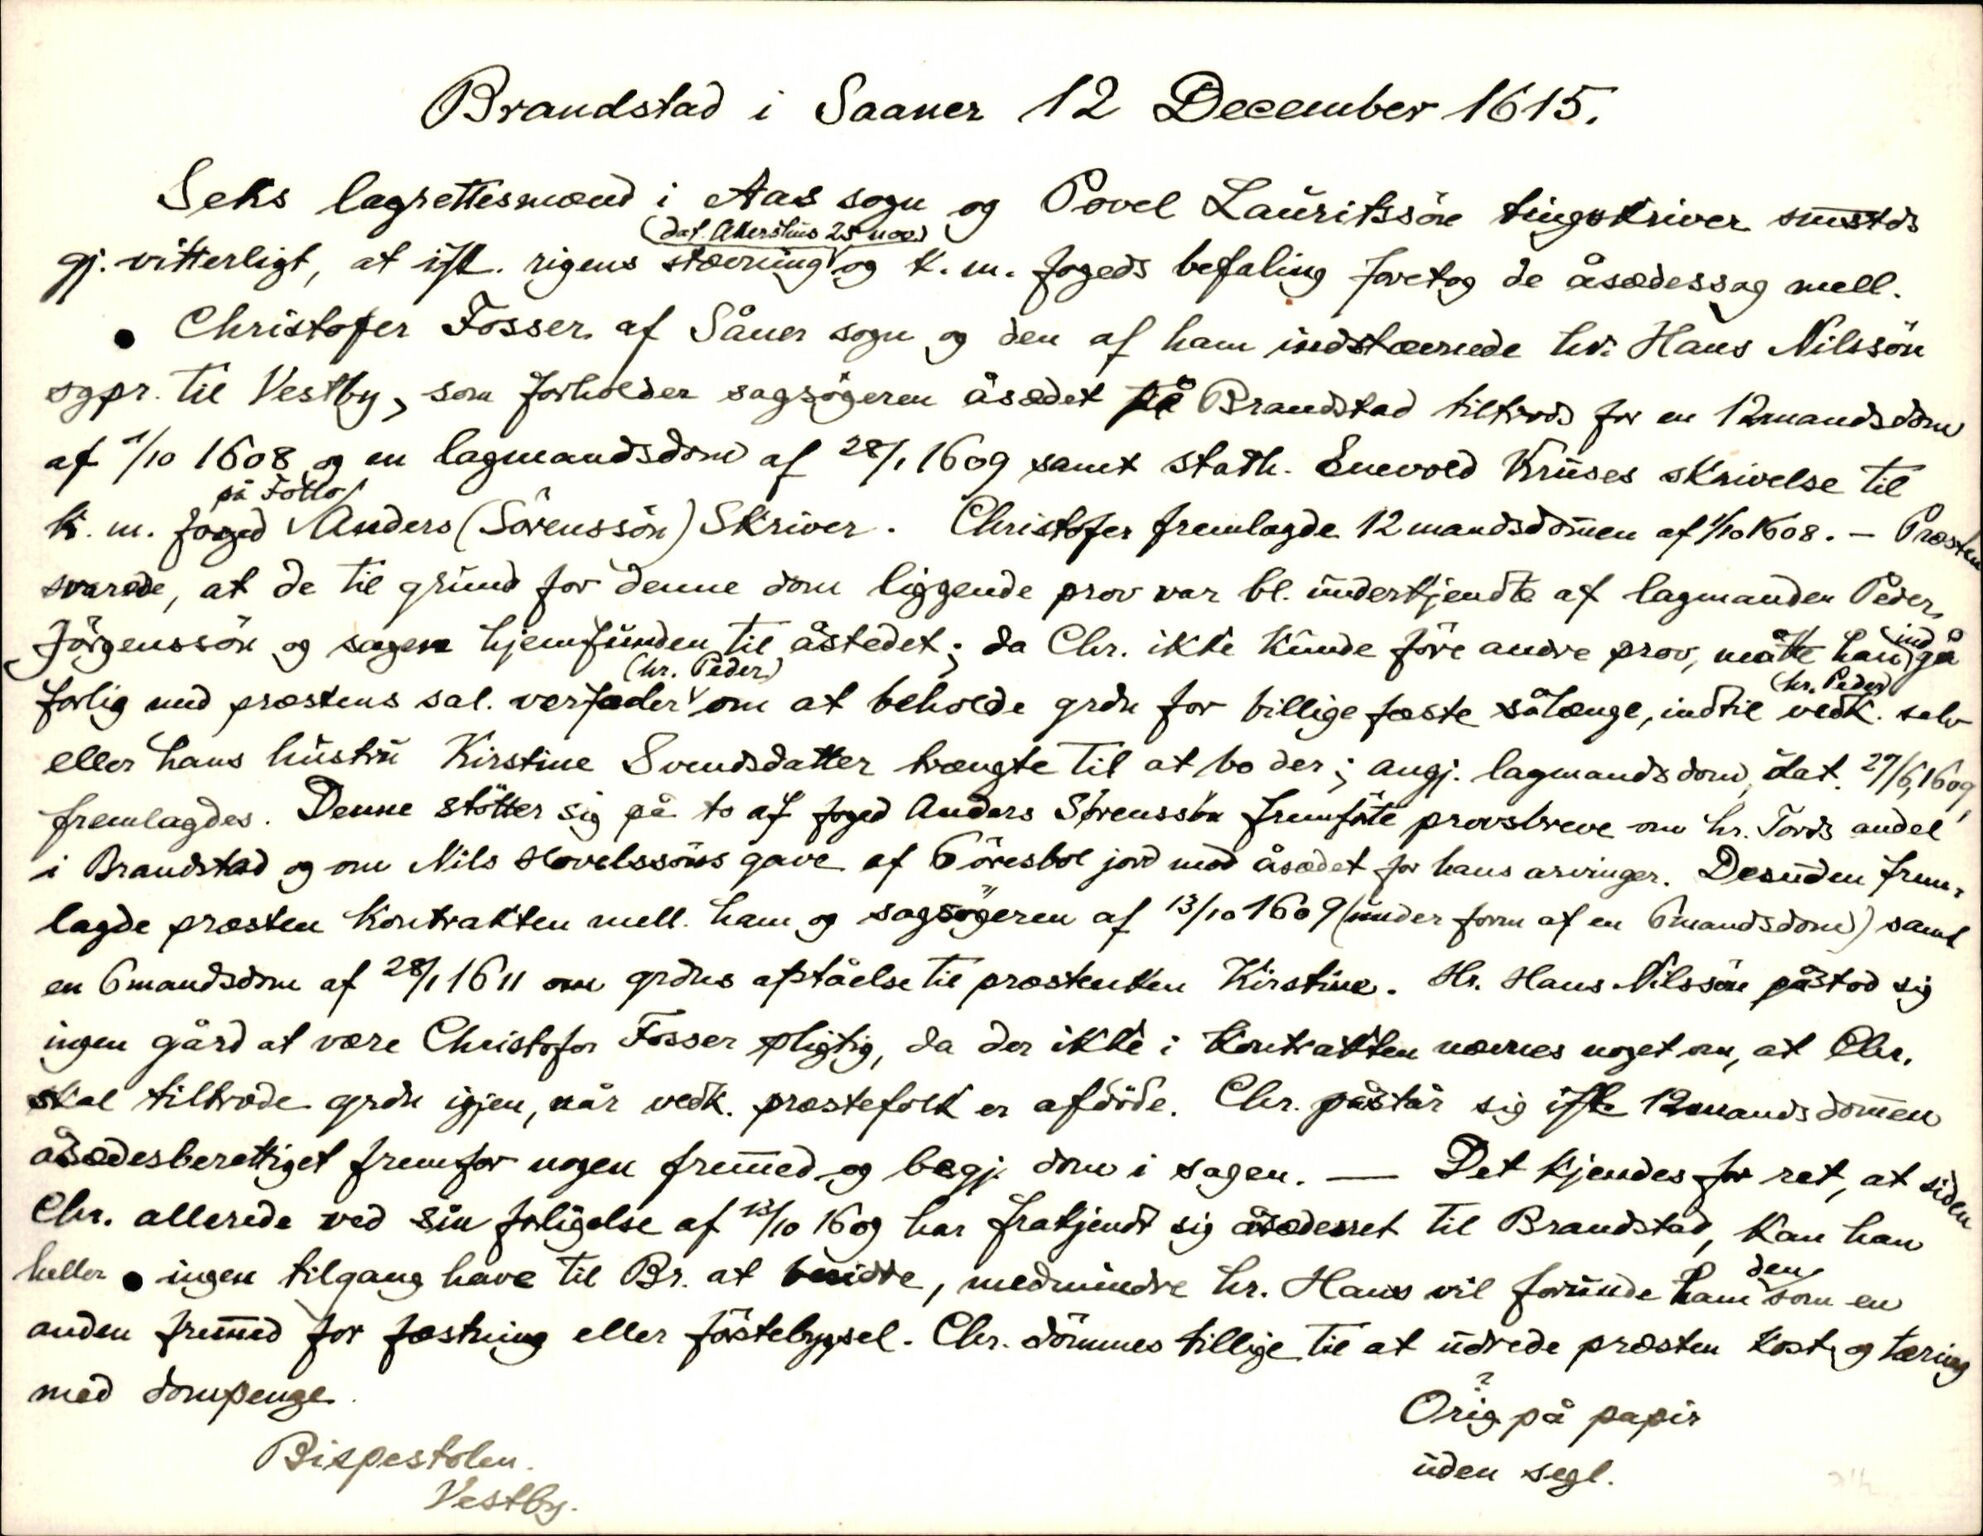 Brandstad i Saaner 12 December 1615.
Seks lagrettesmænd i Aas sogn og Povel Lauritssön tingskriver smstds
(dat. Akershus 25 nov.)
gj. vitterligt, at ifl. rigens stævning og k. m. fogeds befaling foretog de åsædessag mell.
Christofer Fosser af Såner sogn og den af ham indstævnede hr. Hans Nilssön
sgpr. til Vestby, som forholder sagsögeren åsædet på Brandstad tiltrods for en 12mandsdom
af 1/10 1608 og en lagmandsdom af 28/1 1609 samt stath. Enevold Kruses skrivelse til
på Follo
k. m. foged Anders (Sörenssön) Skriver. Christofer fremlagde 12mandsdom̄en af 1/10 1608. — Præsten
svarede, at de til grund for denne dom liggende prov var bl. underkjendte af lagmanden Peder
Jörgenssön og sagen hjemfunden til åstedet; da Chr. ikke kunde före andre prov, måtte han indgå
(hr. Peder) (hr. Peder)
forlig med præstens sal. verfader om at beholde grdn for billige fæste sålænge, indtil vedk. selv
eller hans hustru Kirstine Svendsdatter trængte til at bo der; angj. lagmandsdom, dat. 27/6 1609,
fremlagdes. Denne stötter sig på to af foged Anders Sörenssön fremförte provsbreve om hr. Tords andel
i Brandstad og om Nils Hovelssöns gave af Göresbol jord mod åsædet for hans arvinger. Desuden frem-
lagde præsten kontrakten mell. ham og sagsögeren af 13/10 1609 (under form af en 6mandsdom) samt
en 6mandsdom af 28/1 1611 om grdns afståelse til præstenken Kirstine. Hr. Hans Nilssön påstod sig
ingen gård at være Christofer Fosser pligtig, da der ikke i kontrakten nævnes noget om, at Chr.
skal tiltræde grdn igjen, når vedk. præstefolk er afdöde. Chr. påstår sig ifl. 12mandsdom̄en
åsædesberettiget fremfor nogen frem̄ed og begj. dom i sagen. — Det kjendes for ret, at siden
Chr. allerede ved sin forligelse af 13/10 1609 har frakjendt sig åsædesret til Brandstad, kan han
den
heller ingen tilgang have til Br. at besidde, medmindre hr. Hans vil forunde ham som en
anden frem̄ed for fæstning eller förstebygsel. Chr. dömmes tillige til at udrede præsten kost og tæring
med dompenge.
?
Orig. på papir
uden segl.
Bispestolen.
Vestby.